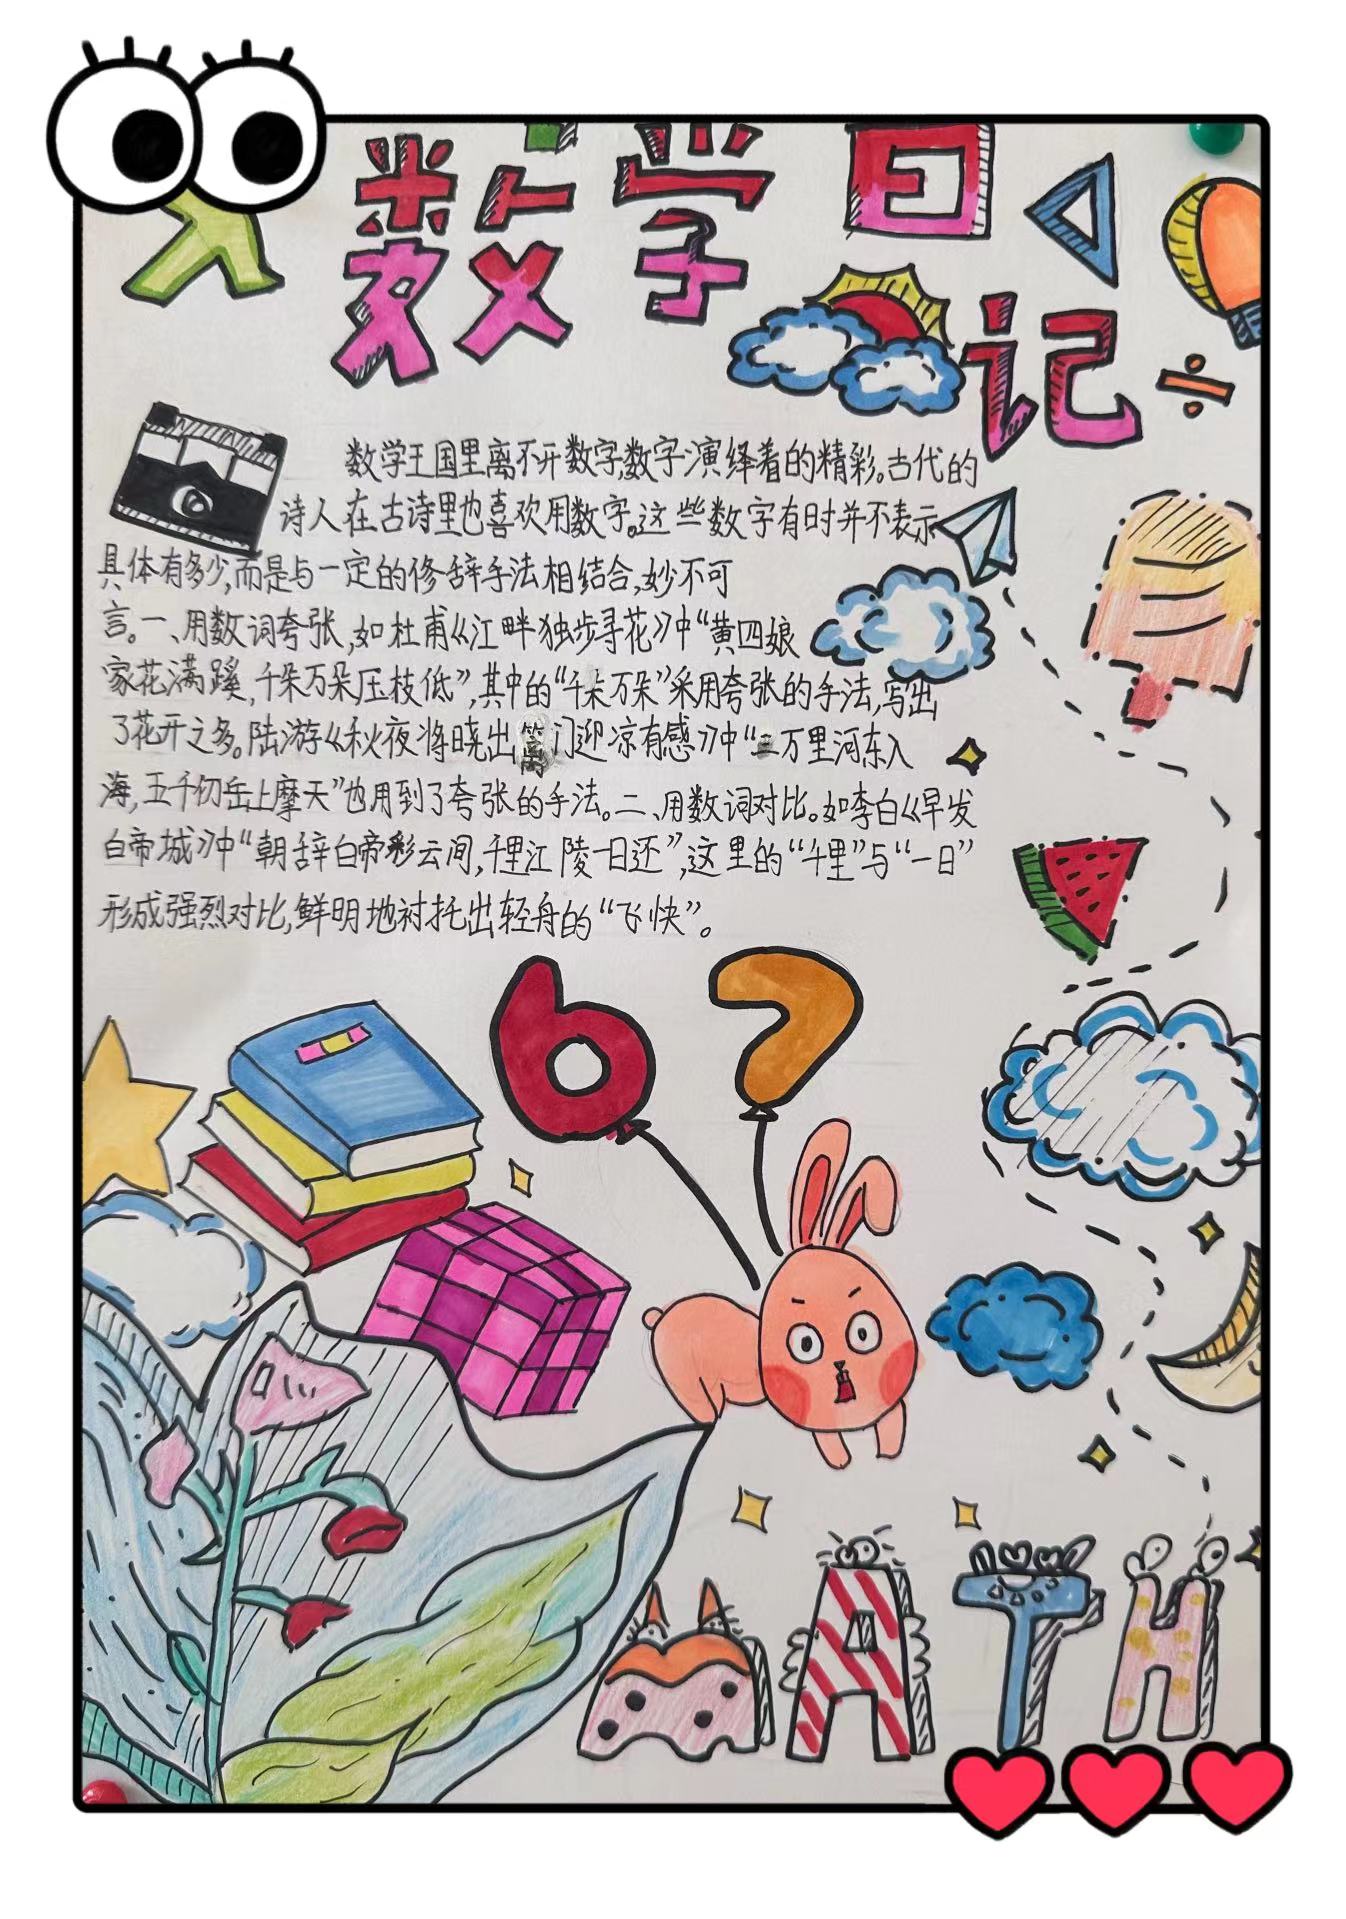 数学日记
÷
数学王国里离不开数字,数字演绎着的精彩。古代的
诗人在古诗里也喜欢用数字。这些数字有时并不表示
具体有多少,而是与一定的修辞手法相结合,妙不可
言。一、用数词夸张,如杜甫《江畔独步寻花》中“黄四娘
家花满蹊,千朵万朵压枝低”,其中的“千朵万朵”采用夸张的手法,写出
了花开之多。陆游《秋夜将晓出篱门迎凉有感》中“三万里河东入
海,五千仞岳上摩天”也用到了夸张的手法。二、用数词对比。如李白《早发
白帝城》中“朝辞白帝彩云间,千里江陵一日还”,这里的“千里”与“一日”
形成强烈对比,鲜明地衬托出轻舟的“飞快”。
67
MATH